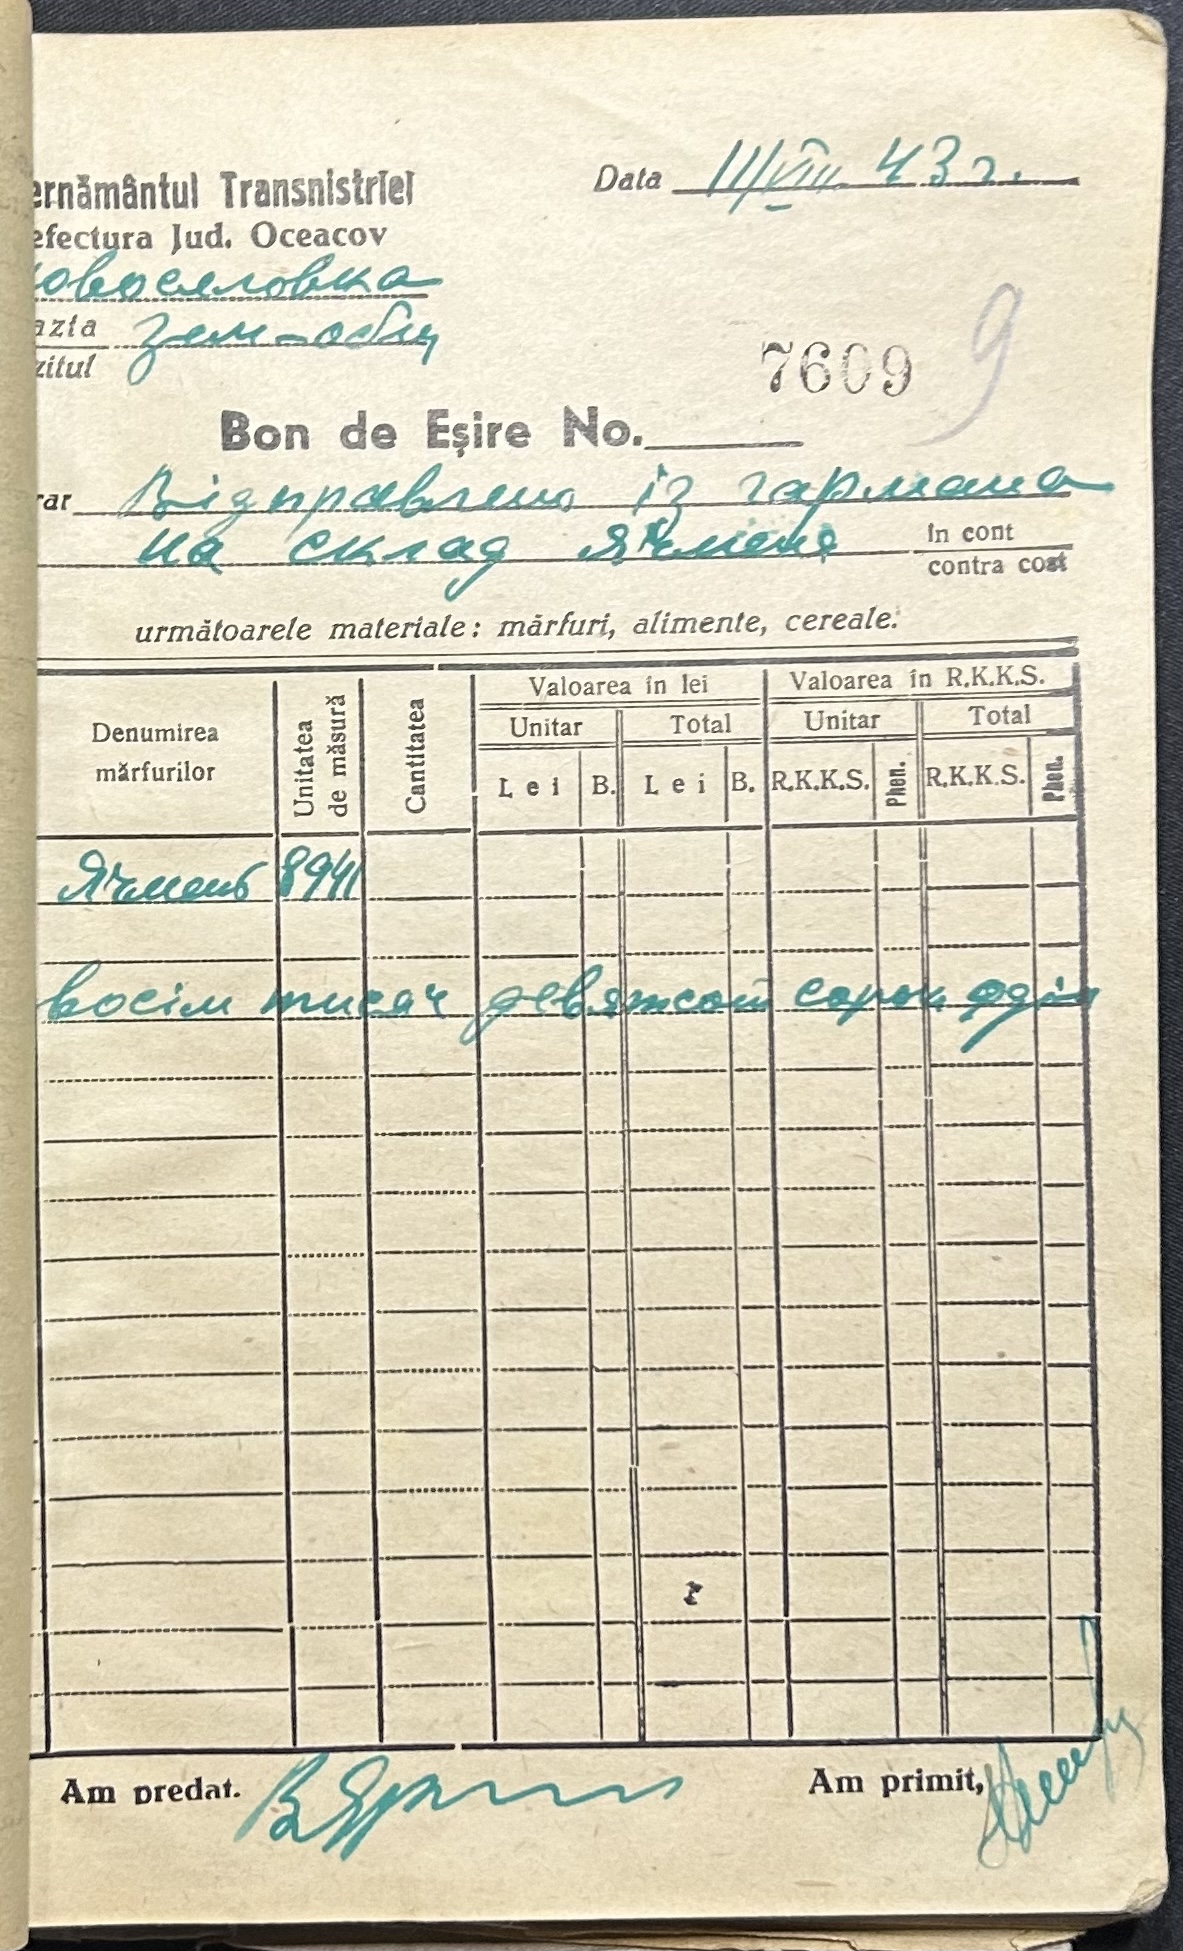 ernământul Transnistriei
Data III/VIII 43 г.
efectura Jud. Oceacov
овоселовка
azia зем-общ
zitul
7609 9
Bon de Eșire No.
rar Відправлено із гармана
на склад ячменю
în cont
contra cost
următoarele materiale: mărfuri, alimente, cereale:
Denumirea mărfurilor
Unitatea de măsură
Cantitatea
Valoarea în lei
Valoarea în R.K.K.S.
Unitar Total Unitar Total
Lei B. Lei B. R.K.K.S. Phen. R.K.K.S. Phen.
Ячмень 8941
восім тисяч девятсот сорок один
Am predat.
Am primit,